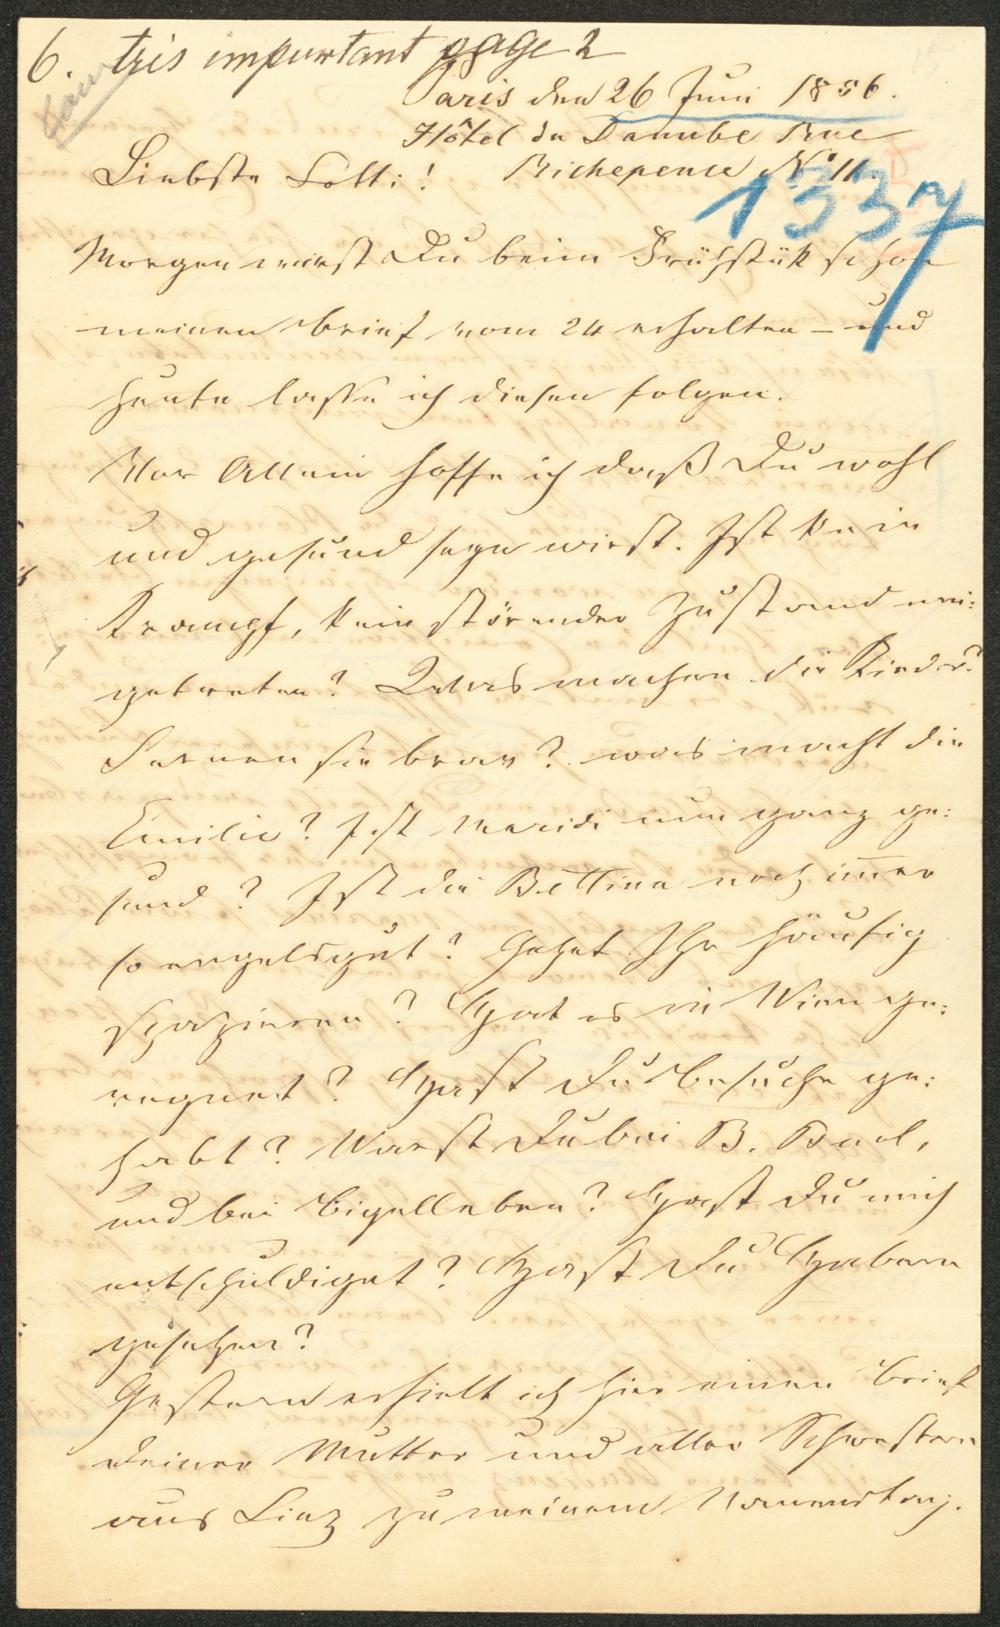 6. très important page 2
Paris den 26 Juni 1856.
Hôtel du Danube Rue
Richepence No 11.
1337
Liebste Lotti!
Morgen wirst Du beim Frühstük schon
meinen Brief vom 24 erhalten – und
heute lasse ich diesen folgen.
Vor Allem hoffe ich daß Du wohl
und gesund seyn wirst. Ist kein
Krampf, kein störender Zustand ein:
getreten? Was machen die Kinder?
Lernen sie brav? was macht die
Emilie? Ist Maridi nun ganz ge:
sund? Ist die Bettina noch im̄er
so engelsgut? Gehet Ihr häufig
spazieren? Hat es in Wien ge:
regnet? Hast Du Besuche ge:
habt? Warst Du bei B. Buol,
und bei Bigelleben? Hast Du mich
entschuldiget? Hast Du Hubern
gesehen?
Gestern erhielt ich hier einen Brief
Deiner Mutter und aller Schwestern
aus Linz zu meinem Namenstag.